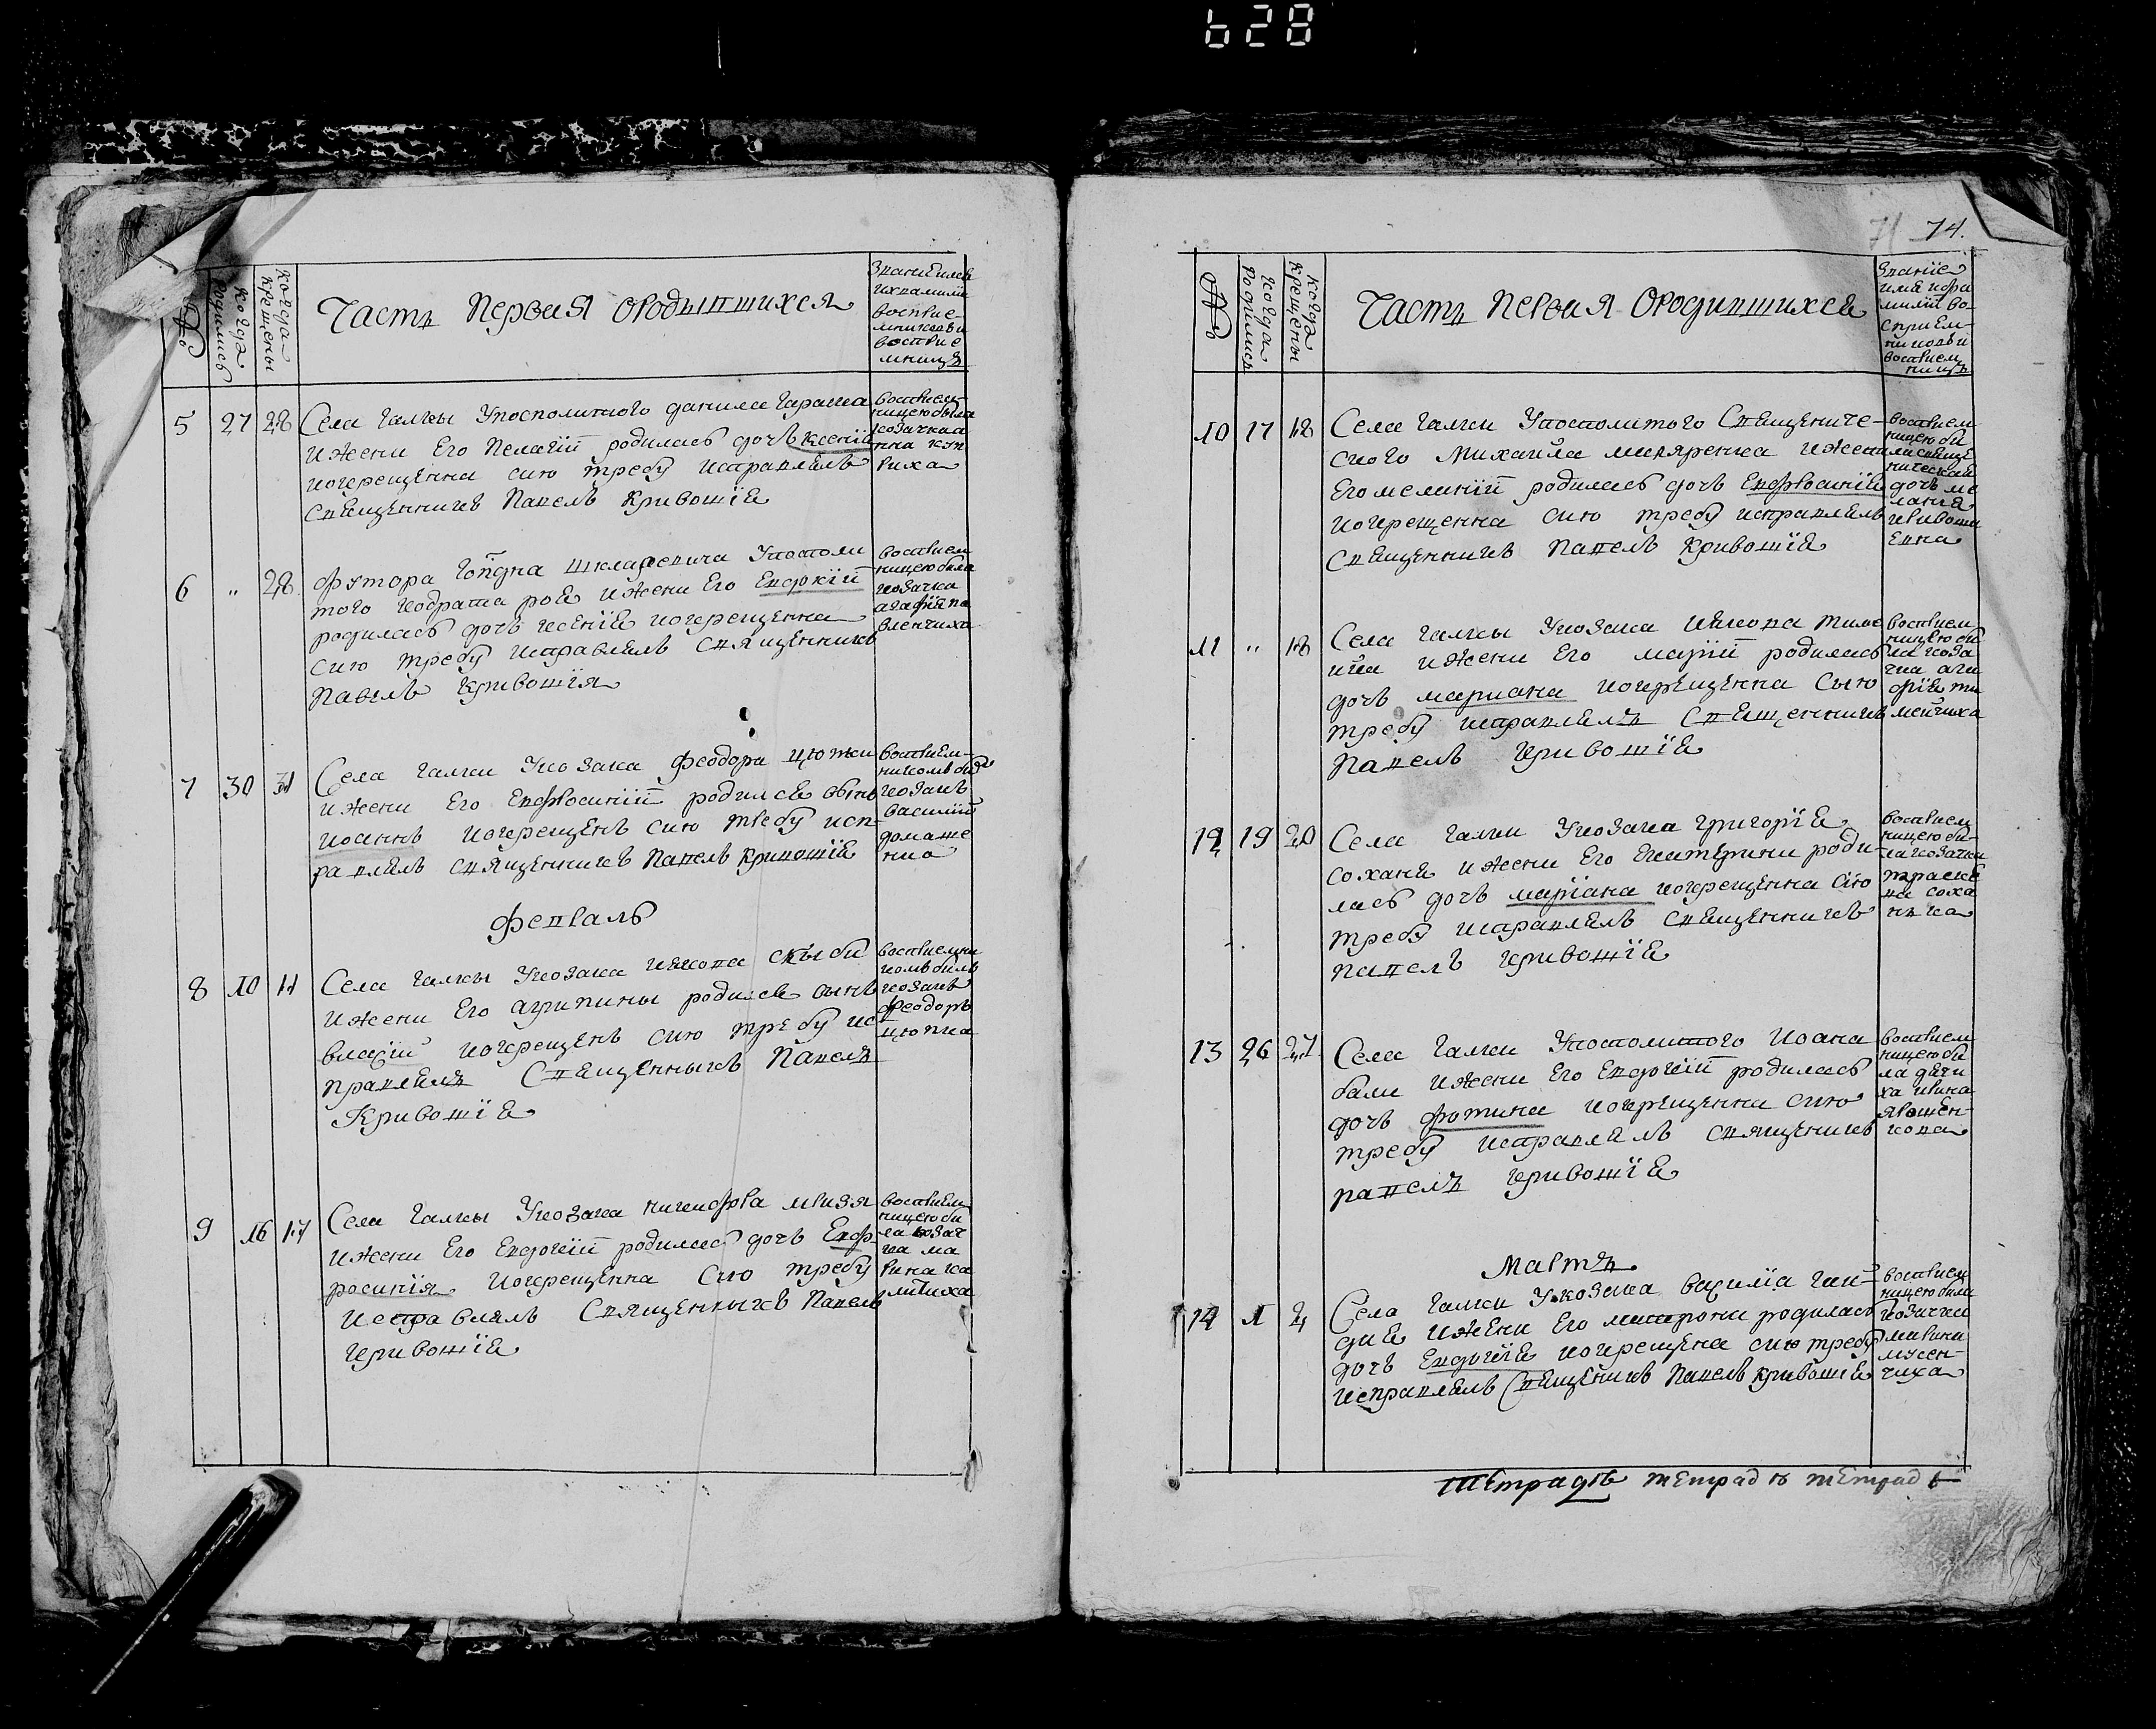 628
№
когда родились
когда крещены
Часть первая о родившихся
восприе-
мников и
восприе
мницъ
5 27 28
Села Галки У посполитого Данила Гараша
и жени Его Пелагіи родилась дочь Ксенія
и окрещенна сию требу исправлялъ
Священникъ Павелъ Кривошія
восприем-
ницею была
козачка а
нна
риха
6 " 28
Футора Шкляревича У посполи
того и жени Его Евдокіи
родилась дочь Ксенія и окрещенна
сию требу исправлялъ Священникъ
Павелъ Кривошія
восприем
ницею била
козачка
агафія па
вленчиха
7 30 31
Села Галки У козака Феодора Цюпки
и жени Его Евфросиніи родился сынъ
Иоаннъ и окрещенъ сию требу исп-
равлялъ Священникъ Павелъ Кривошія
восприем-
никомъ билъ
козакъ
Василий
домаше
нко
Февраль
8 10 11
Села Галкы У козака Иякова Скыби
и жени Его агрипины родился сынъ
власій и окрещенъ сию требу ис
правлялъ Священныкъ Павелъ
Кривошія
восприемни
комъ билъ
козакъ
Феодоръ
цюпка
9 16 17
Села Галкы У козака никифора
и жени Его Евдокіи родилась дочь Евф-
росинія и окрещенна сию требу
исправлялъ Священныкъ Павелъ
Кривошія
восприем
ницею би
ла козач
ка ма
рина ка
литиха
71 74.
№
когда родились
когда крещены
Часть первая о родившихся
Званіе
имя и фа
миліи во-
сприем-
ников и
восприем
ницъ
10 17 18
Села Галки У посполитого Священиче-
ского Михаила маляренка и жени
Его меланіи родилась дочь Евфросинія
и окрещенна сию требу исправлялъ
Священникъ Павелъ Кривошія
восприем
ницею би
ла свяще
ническая
дочь ме
ланія
кривоши
евна
11 " 18
Села Галкы У козака Иякова тиме
и жени Его маріи родилась
дочь мариана и окрещенна сыю
требу исправлялъ Священникъ
Павелъ Кривошія
восприем
ницею би
ла коза
чка ага
фія ти
менчиха
12 19 20
Села Галки У козака Григорія
соханя и жени Его Екатерини роди-
лась дочь маріана и окрещенна сію
требу исправлялъ Священникъ
Павелъ Кривошія
восприем
ницею би-
ла козачка
параске
ва соха
нька
13 26 27
Села Галки У посполитого Иоана
бали и жени Его Евдокіи родилась
дочь фотина и окрещенна сию
требу исправлялъ священикъ
Павелъ Кривошія
восприем
ницею би
ла дячи
ха ирина
ярошен-
кова
Мартъ
14 1 2
Села Галки У козака василіа Гай-
дия и жени Его матрони родилась
дочь Евдокія и окрещена сию требу
исправлялъ Священикъ Павелъ Кривошія
восприем
ницею била
козачка
марина
мусен-
чиха
тетрадь тетрадь тетрад